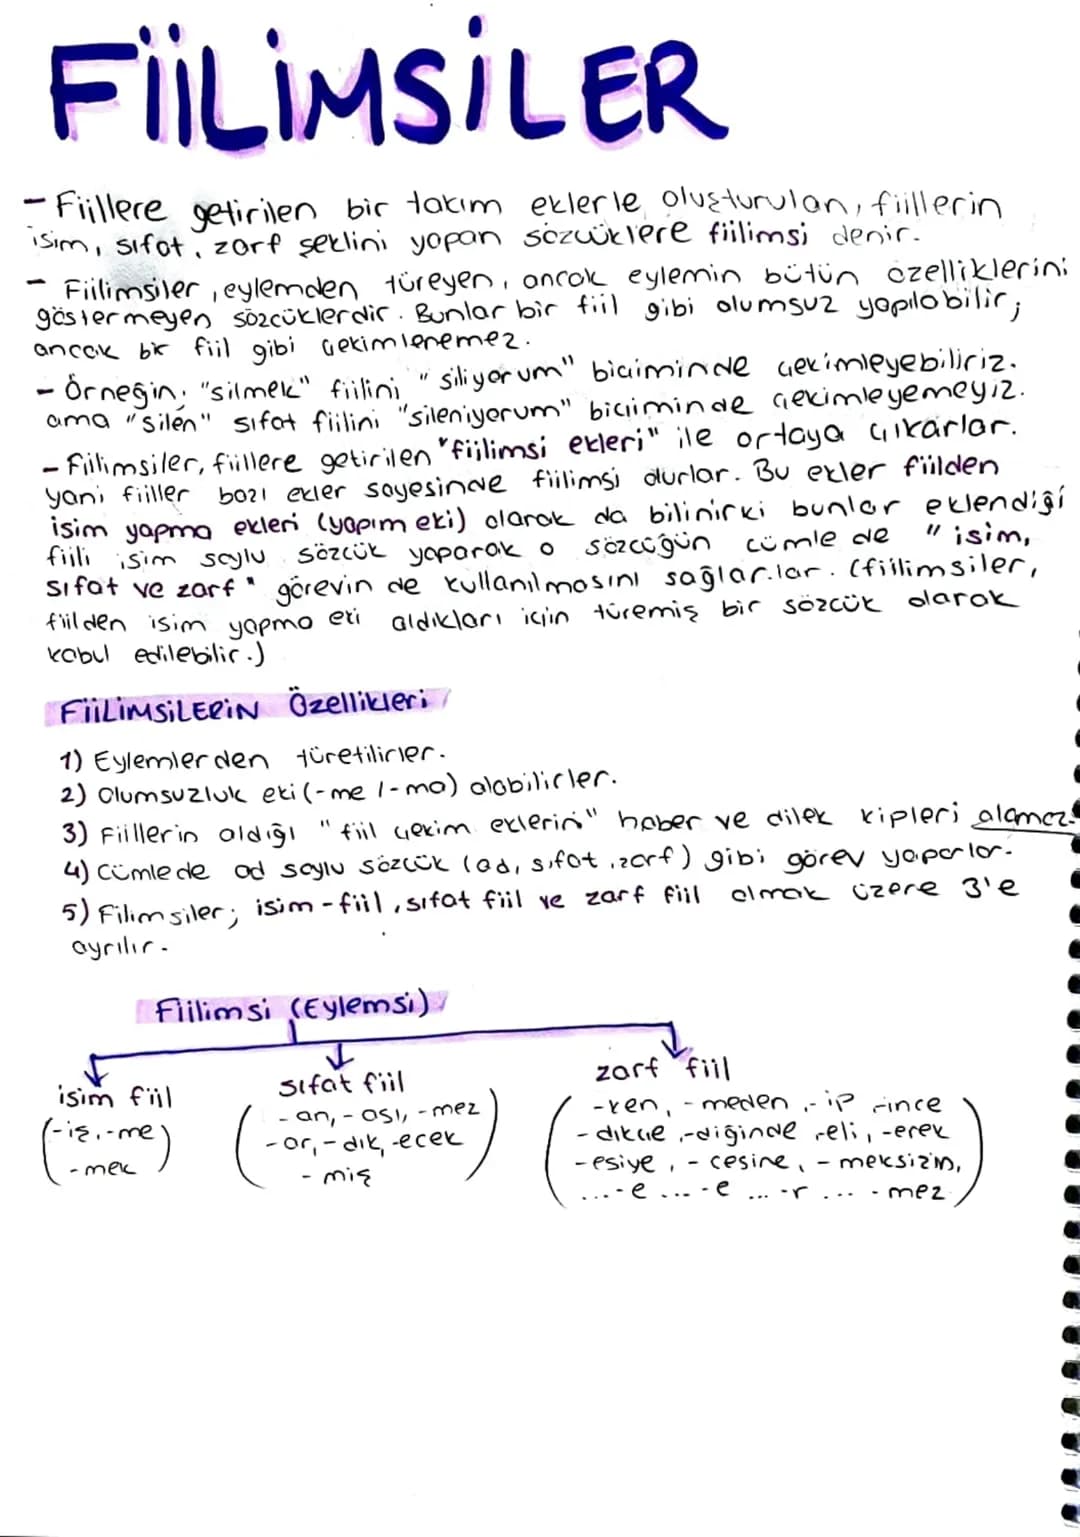 FİİLİMSİLER
- Fiillere getirilen bir takım eklerle oluşturulan, fiillerin
isim, sıfat, zarf şeklini yapan sözcüklere fiilimsi denir.
- Fiilimsiler, eylemden türeyen, ancak eylemin bütün özelliklerini
göstermeyen sözcüklerdir. Bunlar bir fiil gibi olumsuz yapılabilir;
ancak bir fiil gibi çekimlenemez.
- Örneğin, "silmek" fiilini "siliyorum" biçiminde çekimleyebiliriz.
ama "silen" sıfat fiilini "sileniyorum" biçiminde çekimleyemeyiz.
- Fiilimsiler, fiillere getirilen "fiilimsi ekleri" ile ortaya çıkarlar.
yani fiiller bazı ekler sayesinde fiilimsi olurlar. Bu ekler fiilden
isim yapma ekleri (yapım eki) olarak da bilinirki bunlar eklendiği
fiili isim soylu sözcük yaparak o sözcüğün cümle de "isim,
sıfat ve zarf" görevin de kullanılmasını sağlar.lar. (fiilimsiler,
fiilden isim yapma eki aldıkları için türemiş bir sözcük olarak
kabul edilebilir.)
FİİLİMSİLERİN Özellikleri
1) Eylemlerden türetilirler.
2) Olumsuzluk eki (-me /-ma) alabilirler.
3) Fiillerin aldığı "fiil çekim eklerini" haber ve dilek kipleri alamaz.
4) Cümlede ad soylu sözcük (ad, sıfat, zarf) gibi görev yaparlar.
5) Filimsiler; isim-fiil, sıfat fiil ve zarf fiil olmak üzere 3'e
ayrılır.
Fiilimsi (Eylemsi)
isim fiil
(-iş, -me
-mek)
sıfat fiil
(-an, -ası, -mez
-ar, -dık, -ecek
-miş)
zarf fiil
(-ken, -meden, -ip, -ince
-dikçe, -diğinde, -eli, -erek
-esiye, -cesine, -meksizin,
...-e ...-e ...-r ...-mez)